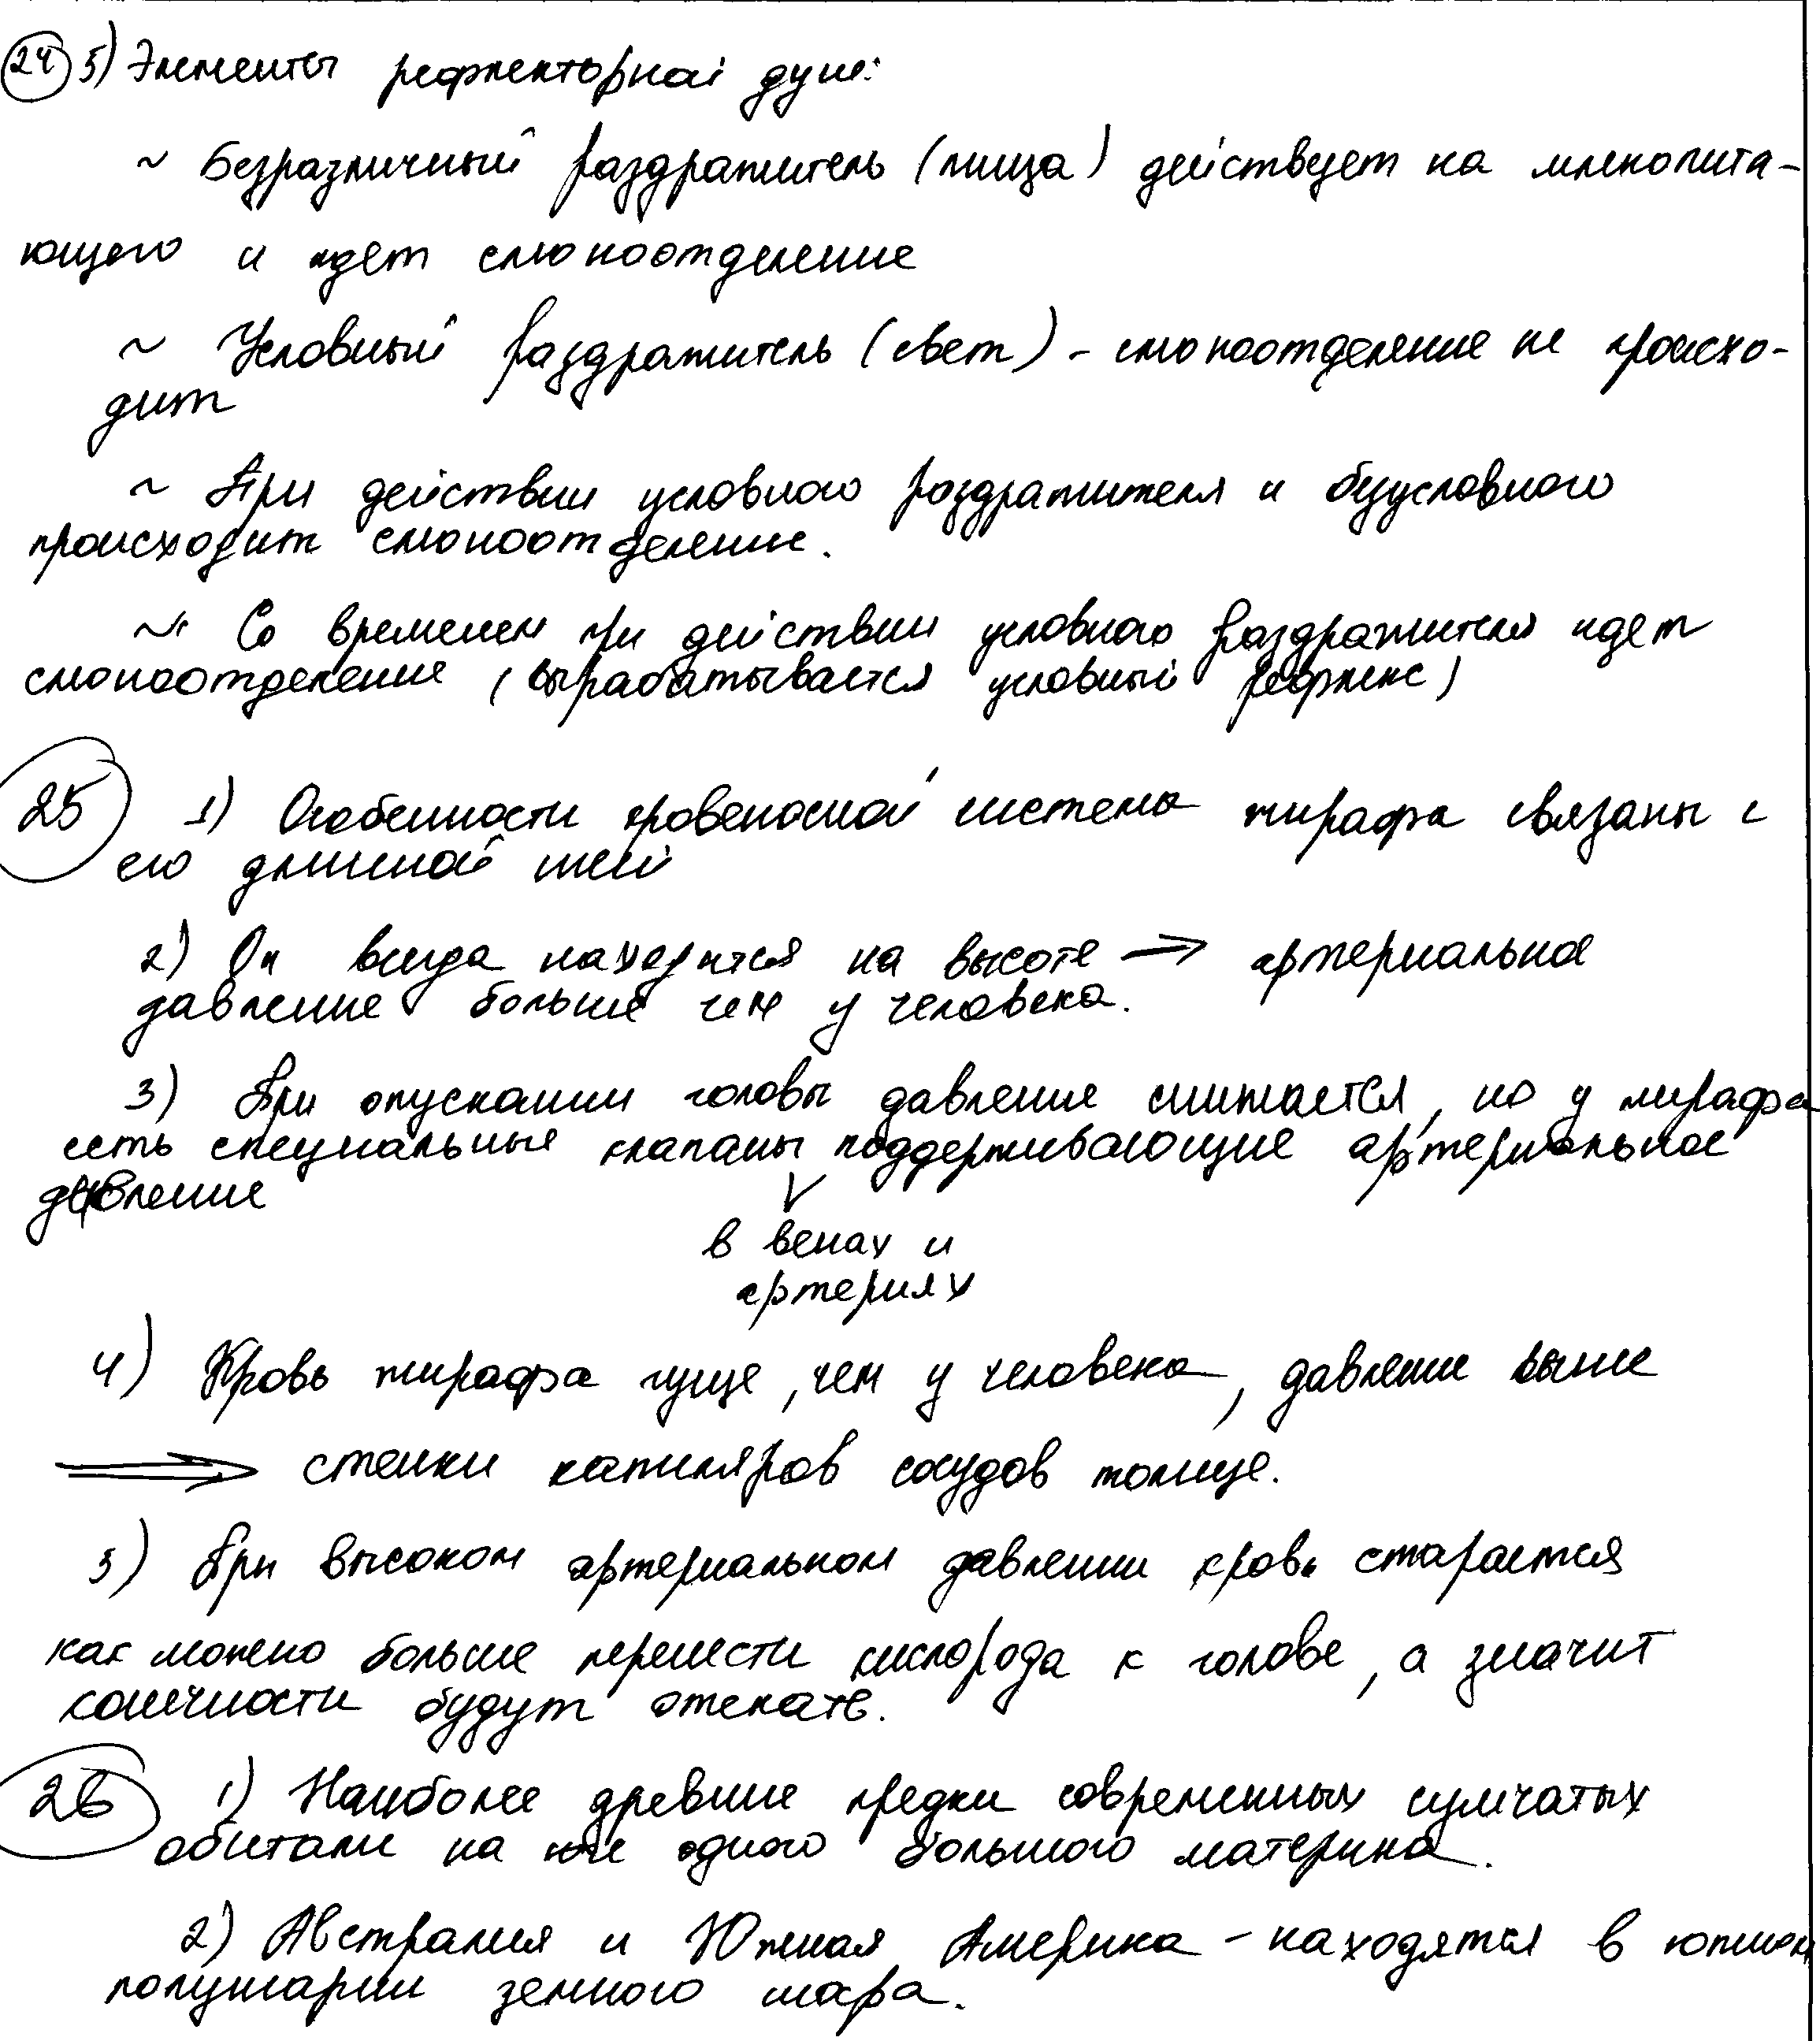 24 5) Элементы рефлекторной дуги:
~ Безразличный раздражитель (пища) действует на млекопита-
ющего и идет слюноотделение
~ Условный раздражитель (свет) - слюноотделение не происхо-
дит
~ При действии условного раздражителя и безусловного
происходит слюноотделение.
~ Со временем при действии условного раздражителя идет
слюноотделение (вырабатывается условный рефлекс)
25 1) Особенности кровеносной системы жирафа связаны с
его длинной шеей
2) Он всегда находится на высоте → артериальное
давление больше чем у человека.
3) При опускании головы давление снижается, но у жирафа
есть специальные клапаны поддерживающие артериальное
давление
в венах и
артериях
4) Кровь жирафа гуще, чем у человека, давление выше
⟹ стенки капиляров сосудов толще.
5) При высоком артериальном давлении кровь старается
как можно больше перенести кислорода к голове, а значит
конечности будут отекать.
26 1) Наиболее древние предки современных сумчатых
обитали на одного большого материка.
2) Австралия и Южная Америка - находятся в южном
полушарии земного шара.